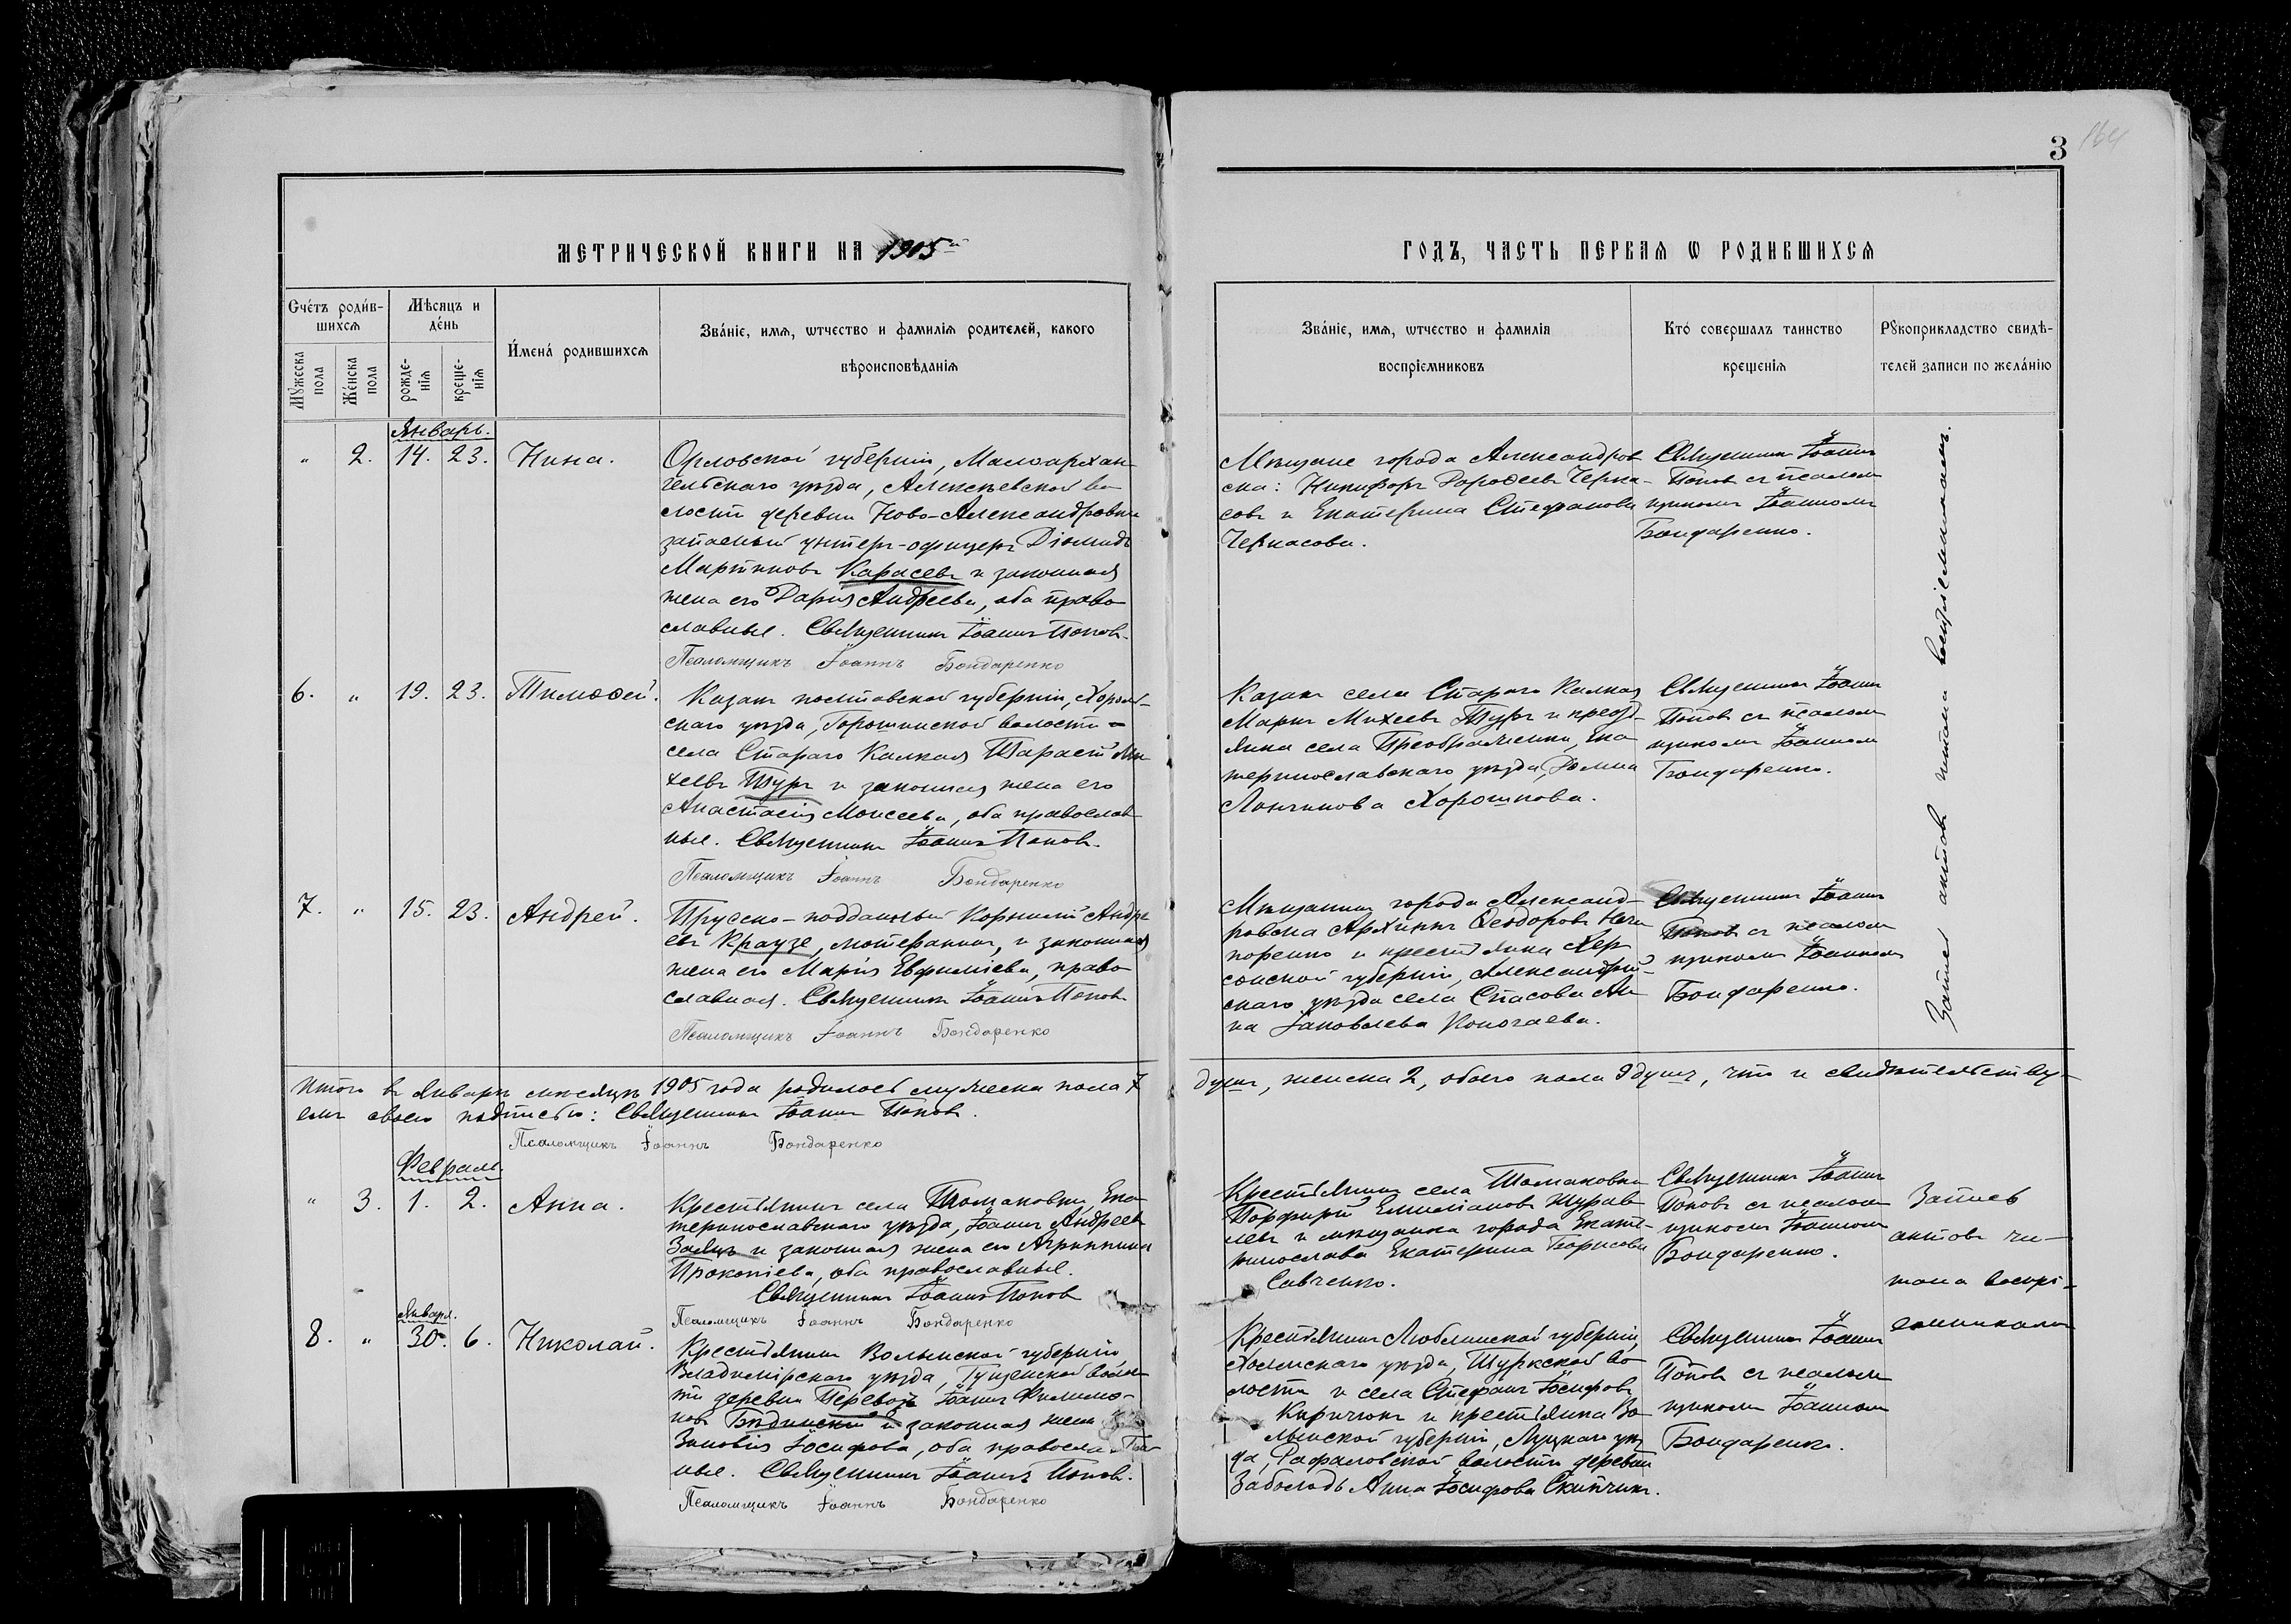 3
164
МЕТРИЧЕСКОЙ КНИГИ НА 1905й
ГОДЪ, ЧАСТЬ ПЕРВАЯ Ѡ РОДИВШИХСЯ
Счетъ родив-
шихся
Мѣсяцъ и
день
Мужеска пола
Женска пола
рожде-
нія
креще-
нія
Имена родившихся
Званіе, имя, ѡтчество и фамилія родителей, какого
вѣроисповѣданія
Званіе, имя, ѡтчество и фамилія
воспріемниковъ
Кто совершалъ таинство
крещенія
Рукоприкладство свидѣ-
телей записи по желанію
Январь.
" 2. 14. 23. Нина.
Орловской губерніи, Малоархан-
гельскаго уѣзда, Алексѣевской во
лости деревни Ново-Александровки
запасный унтеръ-офицеръ Діомидъ
Мартиновъ Карасевъ и законная
жена его Дарія Андреева, оба право
славные. Священникъ Іоаннъ Поповъ.
Псаломщикъ Іоаннъ Бондаренко
Мѣщане города Александров
ска: Никифоръ Черка-
совъ и Екатерина Стефанова
Черкасова.
Священникъ Іоаннъ
Поповъ съ псалом
щикомъ Іоанномъ
Бондаренко.
Запись актовъ читана воспріемникамъ.
6. " 19. 23. Тимоѳей.
Казакъ полтавской губерніи, Хороль-
скаго уѣзда, Горошинской волости
села Стараго Калкая Тарасій Ми
хеевъ Туръ и законная жена его
Анастасія Моисеева, оба православ
ные. Священникъ Іоаннъ Поповъ.
Псаломщикъ Іоаннъ Бондаренко
Казакъ села Стараго Калкая
Маркъ Михеевъ Туръ и крест
янка села Преображенки, Ека
теринославскаго уѣзда, Домна
Лончинова Хорошкова.
Священникъ Іоаннъ
Поповъ съ псалом
щикомъ Іоанномъ
Бондаренко.
7. " 15. 23. Андрей.
Прусско-подданный Корнилій Андре
евъ Краузе, лютеранинъ, и законная
жена его Марія Евфиміева, право
славная. Священникъ Іоаннъ Поповъ
Псаломщикъ Іоаннъ Бондаренко
Мѣщанинъ города Александ-
ровска Архипъ Ѳеодоровъ Нечи
поренко и крестьянка Хер
сонской губерніи, Александрій-
скаго уѣзда села Спасова Ан
на Іаковлева Коногаева.
Священникъ Іоаннъ
Поповъ съ псалом
щикомъ Іоанномъ
Бондаренко.
Итого въ Январѣ мѣсяцѣ 1905 года родилось мужеска пола 7
душъ, женска 2, обоего пола 9 душъ, что и свидѣтельству-
емъ своею подписью: Священникъ Іоаннъ Поповъ.
Псаломщикъ Іоаннъ Бондаренко
Февраль.
" 3. 1. 2. Анна.
Крестьянинъ села Томаковки, Ека
теринославскаго уѣзда, Іоаннъ Андреевъ
Заяцъ и законная жена его Агриппина
Прокопіева, оба православные.
Священникъ Іоаннъ Поповъ
Псаломщикъ Іоаннъ Бондаренко
Крестьянинъ села Томаковки
Порфирій Емиліановъ Журав
левъ и мѣщанка города Екате-
ринослава Екатерина Борисова
Савченко.
Священникъ Іоаннъ
Поповъ съ псалом
щикомъ Іоанномъ
Бондаренко.
Запись
актовъ чи-
тана воспрі-
емникамъ
Января.
8. " 30. 6. Николай.
Крестьянинъ Волынской губерніи
Владимірскаго уѣзда, волос
ти деревни Перевозъ Іоаннъ Филимо-
новъ Бѣдинскій и законная жена
Зиновія Іосифова, оба правосла
ные. Священникъ Іоаннъ Поповъ.
Псаломщикъ Іоаннъ Бондаренко
Крестьянинъ Люблинской губерніи,
Холмскаго уѣзда, Туркской во
лости и села Стефанъ Іосифовъ
Киричукъ и крестьянка Во
лынской губерніи, Луцкаго уѣз
да, Рафаловской волости деревни
Заболодь Анна Іосифова Скипчикъ.
Священникъ Іоаннъ
Поповъ съ псалом
щикомъ Іоанномъ
Бондаренко.